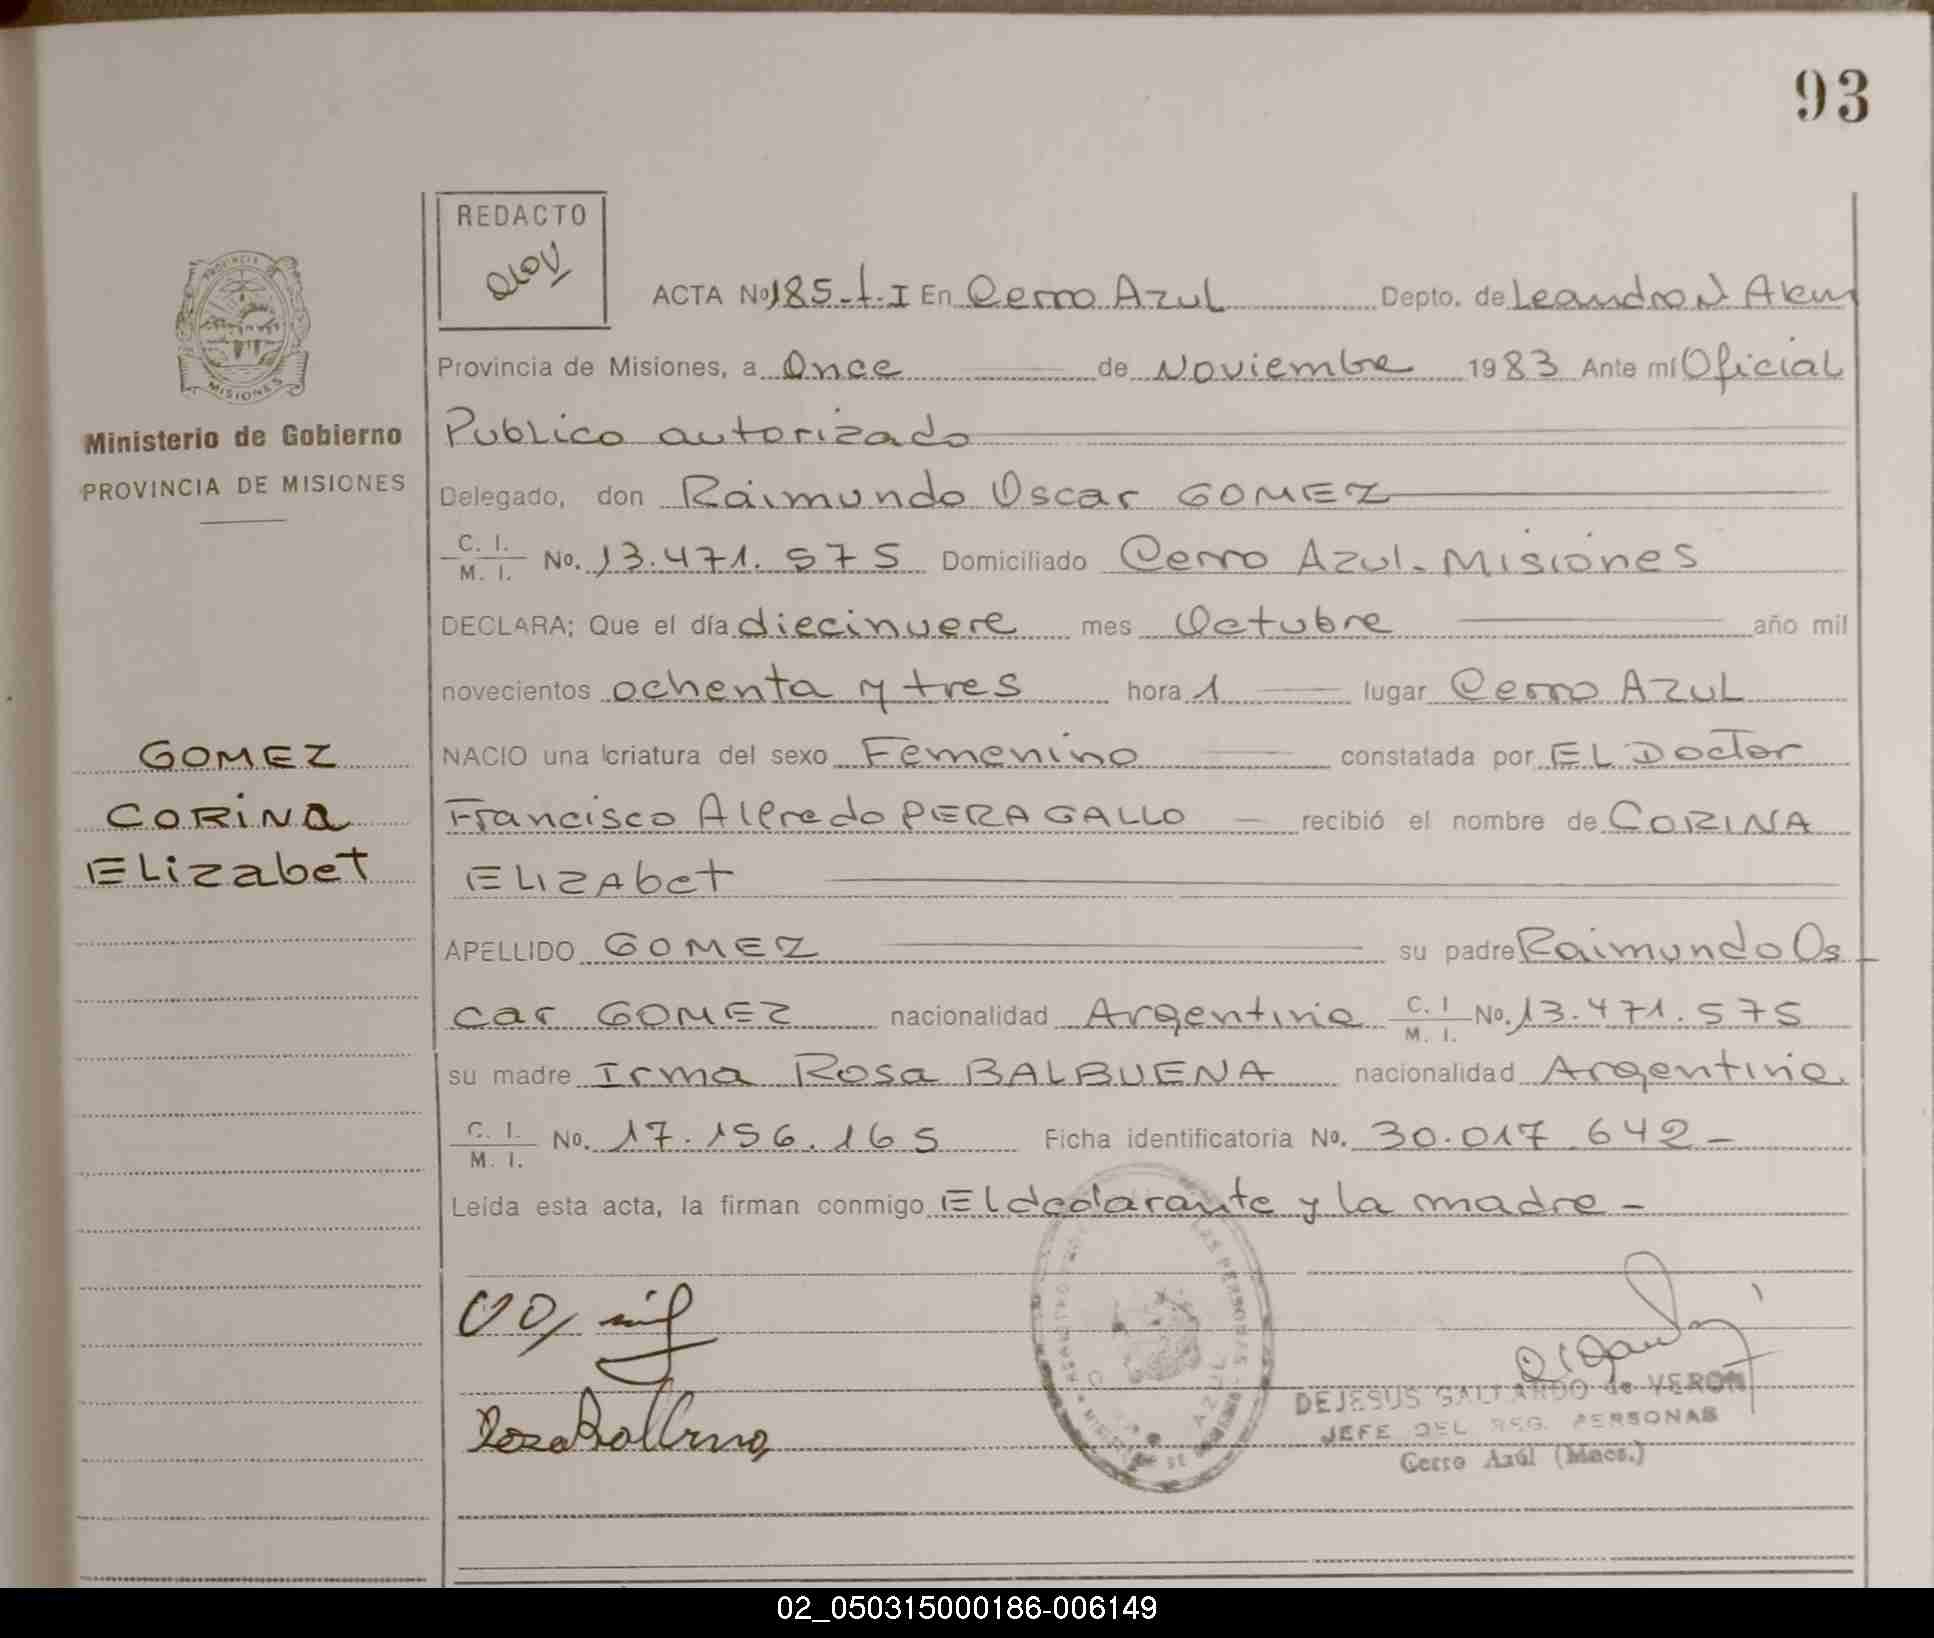 93
REDACTO
ACTA No 185-t.I En Cerro Azul Depto. de Leandro N Alem
Provincia de Misiones, a Once de Noviembre 1983 Ante mi Oficial
Publico autorizado
Delegado, don Raimundo Oscar GOMEZ
C. I. / M. I. No. 13.471.575 Domiciliado Cerro Azul. Misiones
DECLARA; Que el día diecinueve mes Octubre año mil
novecientos ochenta y tres hora 1 lugar Cerro Azul
NACIO una criatura del sexo Femenino constatada por El Doctor
Francisco Alfredo PERAGALLO recibió el nombre de CORINA
ELIZAbet
APELLIDO GOMEZ su padre Raimundo Os-
car GOMEZ nacionalidad Argentina C. I / M. I. No. 13.471.575
su madre Irma Rosa BALBUENA nacionalidad Argentina
C. I. / M. I. No. 17.156.165 Ficha identificatoria No. 30.017.642-
Leída esta acta, la firman conmigo El declarante y la madre-
PROVINCIA DE
MISIONES
Ministerio de Gobierno
PROVINCIA DE MISIONES
GOMEZ
CORINA
Elizabet
Rosa Balbuena
DEJESUS GALLARDO de VERON
JEFE DEL REG. PERSONAS
Cerro Azúl (Mnes.)
02_050315000186-006149